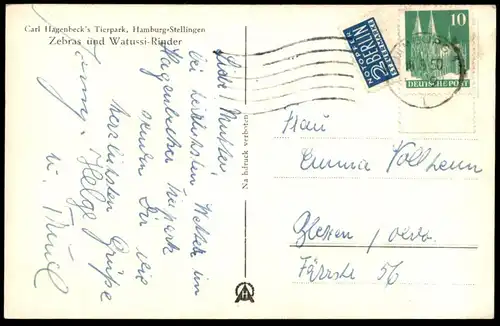 Carl Hagenbeck's Tierpark, Hamburg-Stellingen
Zebras und Watussi-Rinder
Liebe Mutter,
bei herrlichstem Wetter im
Hagenbecker Tierpark
senden Dir die
herzlichsten Grüße
Helge
u. Trude
Nachdruck verboten
NOTOPFER
2 BERLIN
STEUERMARKE
10
DEUTSCHE POST
Frau
Emma
Färrstr 56